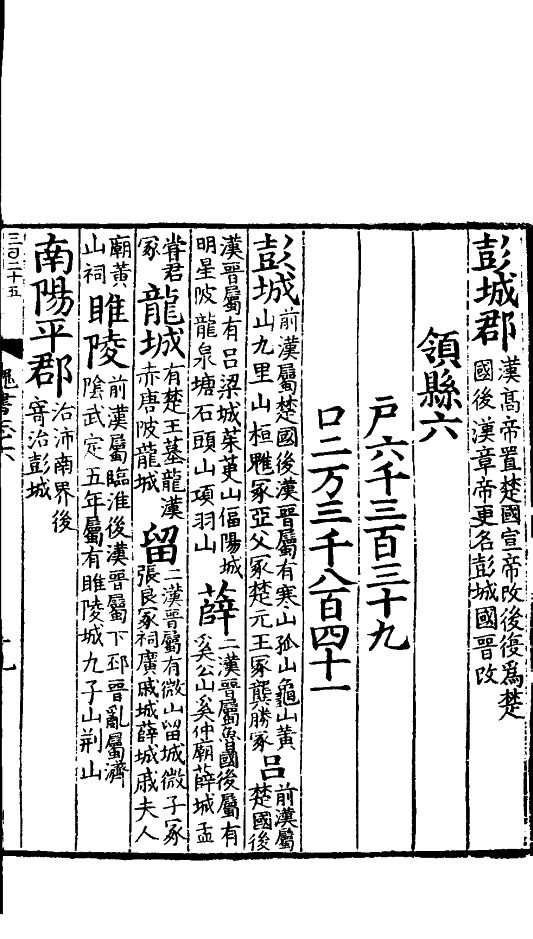 彭城郡漢高帝置楚國宣帝改後復爲楚國後漢章帝更名彭城國晉改
領縣六
戸六千三百三十九
口二万三千八百四十一
彭城前漢屬楚國後漢晉屬有寒山孤山龜山黃山九里山桓魋冢亞父冢楚元王冢龔勝冢呂前漢屬楚國後
漢晉屬有呂梁城茱萸山偪陽城明星陂龍泉塘石頭山項羽山薛二漢晉屬魯國後屬有奚公山奚仲廟薛城孟
甞君冢龍城有楚王墓龍漢赤唐陂龍城留二漢晉屬有微山留城微子冢張良冢祠廣戚城薛城戚夫人
廟黃山祠睢陵前漢屬臨淮後漢晉屬下邳晉亂屬濟陰武定五年屬有睢陵城九子山荆山
南陽平郡治沛南界後寄治彭城
三百二十五
魏書六
十九